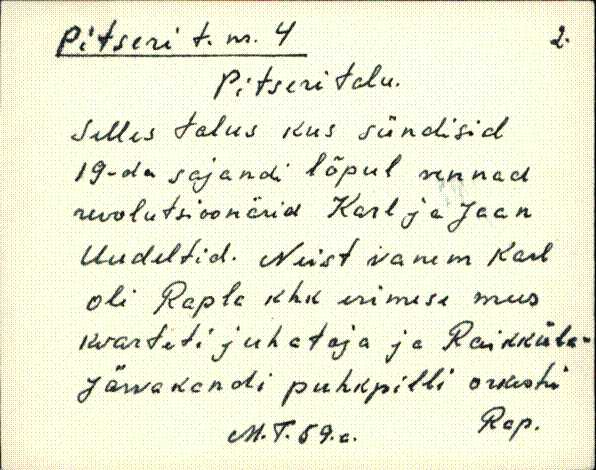 Pitseri t. nr. 4 2.
Pitseri talu.
Selles talus kus sündisid
19-da sajandi lõpul vennad
revolutsioonärid Karl ja Jaan
Uudeltid. Neist vanem Karl
oli Rapla khk esimese mees
kvarteti juhataja ja Raikküla-
Järvakandi puhkpilli orkestri
M.T. 59.a. Rap.